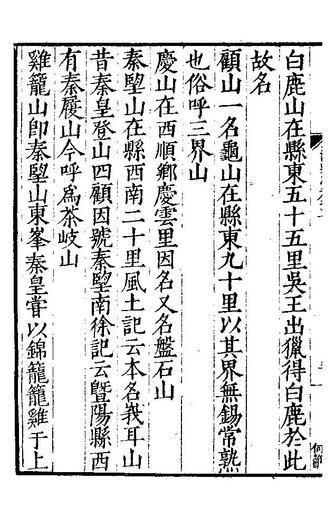 白鹿山在縣東五十五里吳王出獵得白鹿於此
故名
顧山一名龜山在縣東九十里以其界無錫常熟
也俗呼三界山
慶山在西順鄉慶雲里因名又名盤石山
秦朢山在縣西南二十里風土記云本名峩耳山
昔秦皇登山四顧因號秦朢南徐記云曁陽縣西
有秦履山今呼爲茶岐山
雞籠山卽秦朢山東峯秦皇甞以錦籠籠雞于上